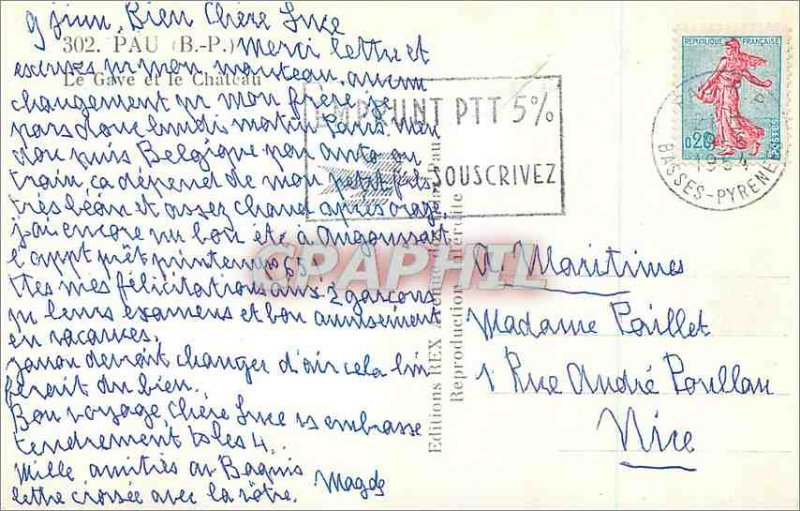 9 juin. Bien Chère Luce
302. PAU (B.-P.)
Le Gave et le Château
merci lettre et
excuses pr mon manteau. aucun
changement pr mon frère, je
pars donc lundi matin Paris.
puis Belgique par auto ou
train, ça dépend de mon petit fils,
très béau et assez chaud après orage,
j'ai encore
l'appt prêt printemps 65
ttes mes félicitations aux 2 garçons
pr leurs examens et bon amusement
en vacances.
devrait changer d'air cela lui
ferait du bien.
Bon voyage Chère Luce vs embrasse
tendrement ts les 4.
Mille amitiés
lettre croisée avec la vôtre. Magde
EMPRUNT PTT 5%
SOUSCRIVEZ
REPUBLIQUE FRANÇAISE
0,20
POSTES
PAU
1964
BASSES-PYRENEES
Editions REX
Reproduction interdite
CPAPHIL
A. Maritimes
Madame Paillet
1 Rue André Poullan
Nice